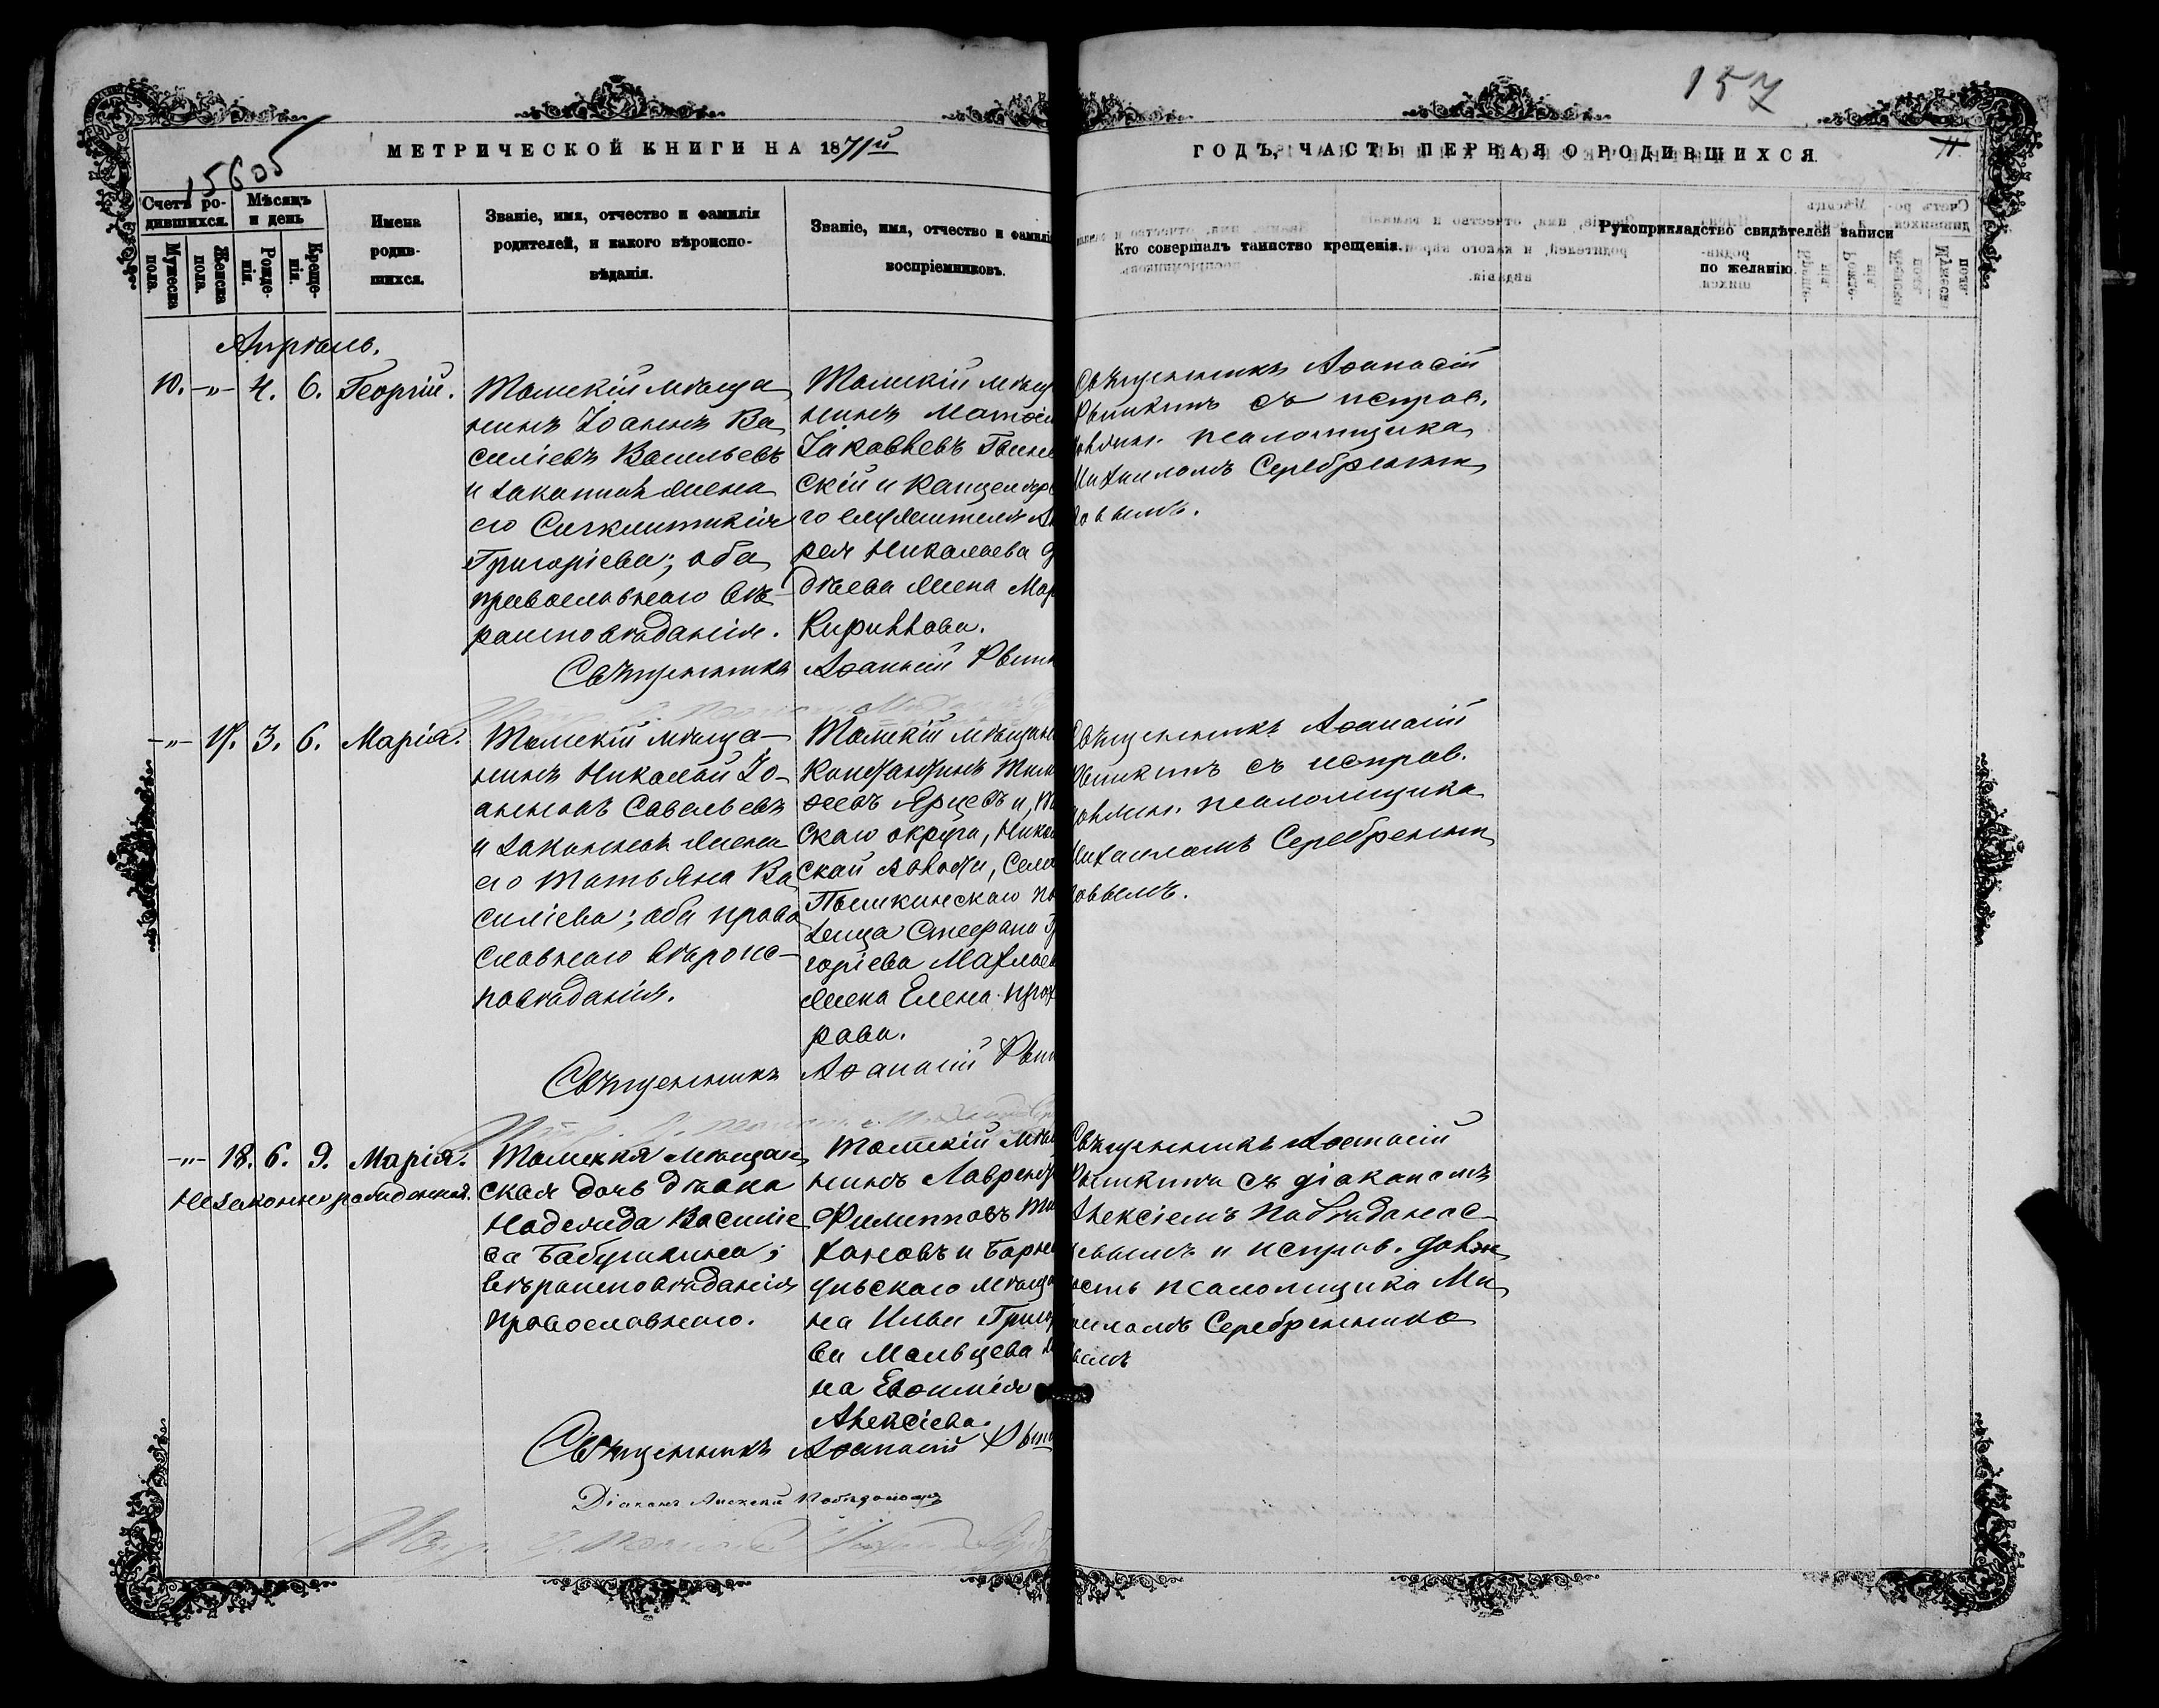 157
МЕТРИЧЕСКОЙ КНИГИ НА 1871й
ГОДЪ, ЧАСТЬ ПЕРВАЯ О РОДИВШИХСЯ.
11
15605
Счетъ ро-
дившихся.
Мужеска
пола.
Женска
пола.
Мѣсяцъ
и день
Рожде-
нія.
Креще-
нія.
Имена
родив-
шихся.
Званіе, имя, отчество и фамилія
родителей, и какого вѣроиспо-
вѣданія.
Званіе, имя, отчество и фамилі
воспріемниковъ.
Кто совершалъ таинство крещенія.
Рукоприкладство свидѣтелей записи
по желанію.
Апрѣль.
10. -„- 4. 6. Георгій.
Томскій мѣща
нинъ Іоаннъ Ва
силіевъ Васильевъ
и законная жена
его Синклитикія
Григоріева; оба
православнаго вѣ-
роисповѣданія.
Томскій мѣщ
нинъ
Іаковлевъ
скій и канцеляр
го служителя
рея Николаева
дѣева жена Мар
Кириллова.
Священникъ Аѳанасій
съ исправ.
должн. псаломщика
Михаиломъ Серебренни
ковымъ.
Священникъ Аѳанасій
-„- 17. 3. 6. Марія.
Томскій мѣща-
нинъ Николай Іо-
анновъ Савельевъ
и законная жена
его Татьяна Ва
силіева; оба право
славнаго вѣроис-
повѣданія.
Томскій мѣщани
Константинъ Тимо
ѳеевъ Ярцевъ и, То
скаго округа, Никол
ской волости, села
Пышкинскаго по
Стефана Гри
горіева
жена Елена Прохо
рова.
Священникъ Аѳанасій
съ исправ.
должн. псаломщика
Михаиломъ Серебренни
ковымъ.
Священникъ Аѳанасій
-„- 18. 6. 9. Марія.
Незаконнорожденная.
Томская мѣщан
ская дочь дѣвка
Надежда Василіе
ва Бабушкина;
вѣроисповѣданія
православнаго.
Томскій мѣщ
нинъ Лаврентій
Филипповъ Ти
хановъ и Барна
ульскаго мѣща
на Ильи Григор
ва Мальцева же
на Евѳимія
Алексіева.
Священникъ Аѳанасій
съ діакономъ
Алексіемъ Побѣдонос-
цевымъ и исправ. долж
ность псаломщика Ми
хаиломъ Серебреннико
вымъ
Священникъ Аѳанасій
Діаконъ Алексій Побѣдоносцевъ